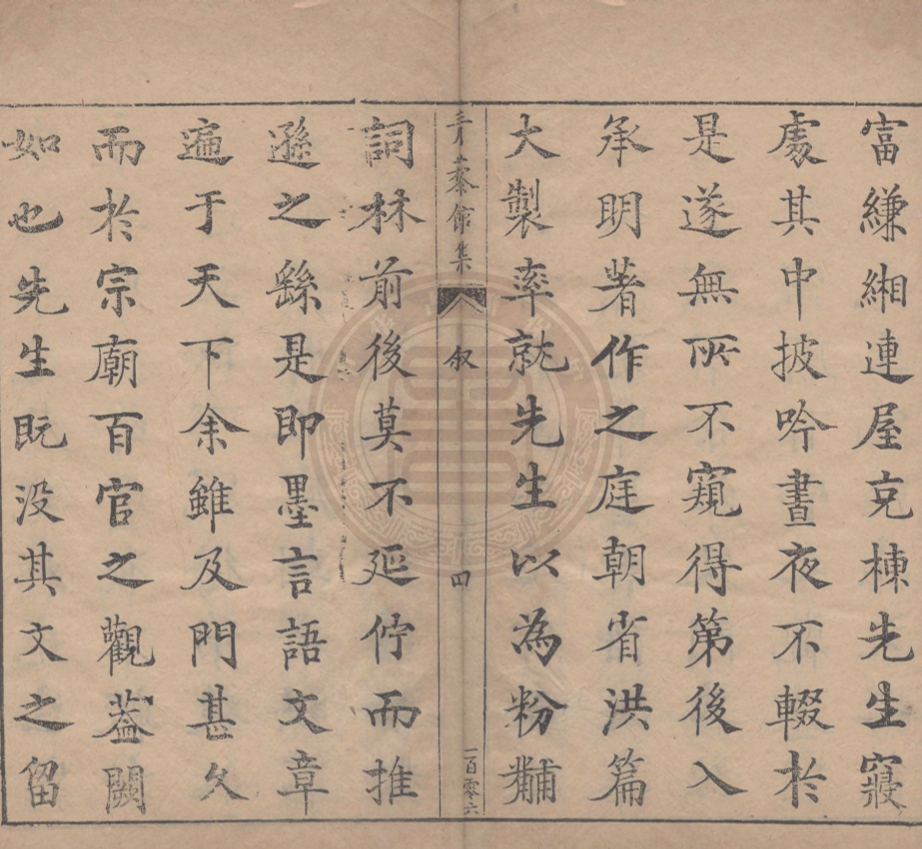 富縑緗連屋克棟先生寢
處其中披吟晝夜不輟於
是遂無所不窺得第後入
承明著作之庭朝省洪篇
大製率就先生以為粉黼
青來館集
叙
四
一百零六
詞林前後莫不延佇而推
遜之繇是即墨言語文章
遍于天下余雖及門甚久
而於宗廟百官之觀葢闕
如也先生既没其文之留